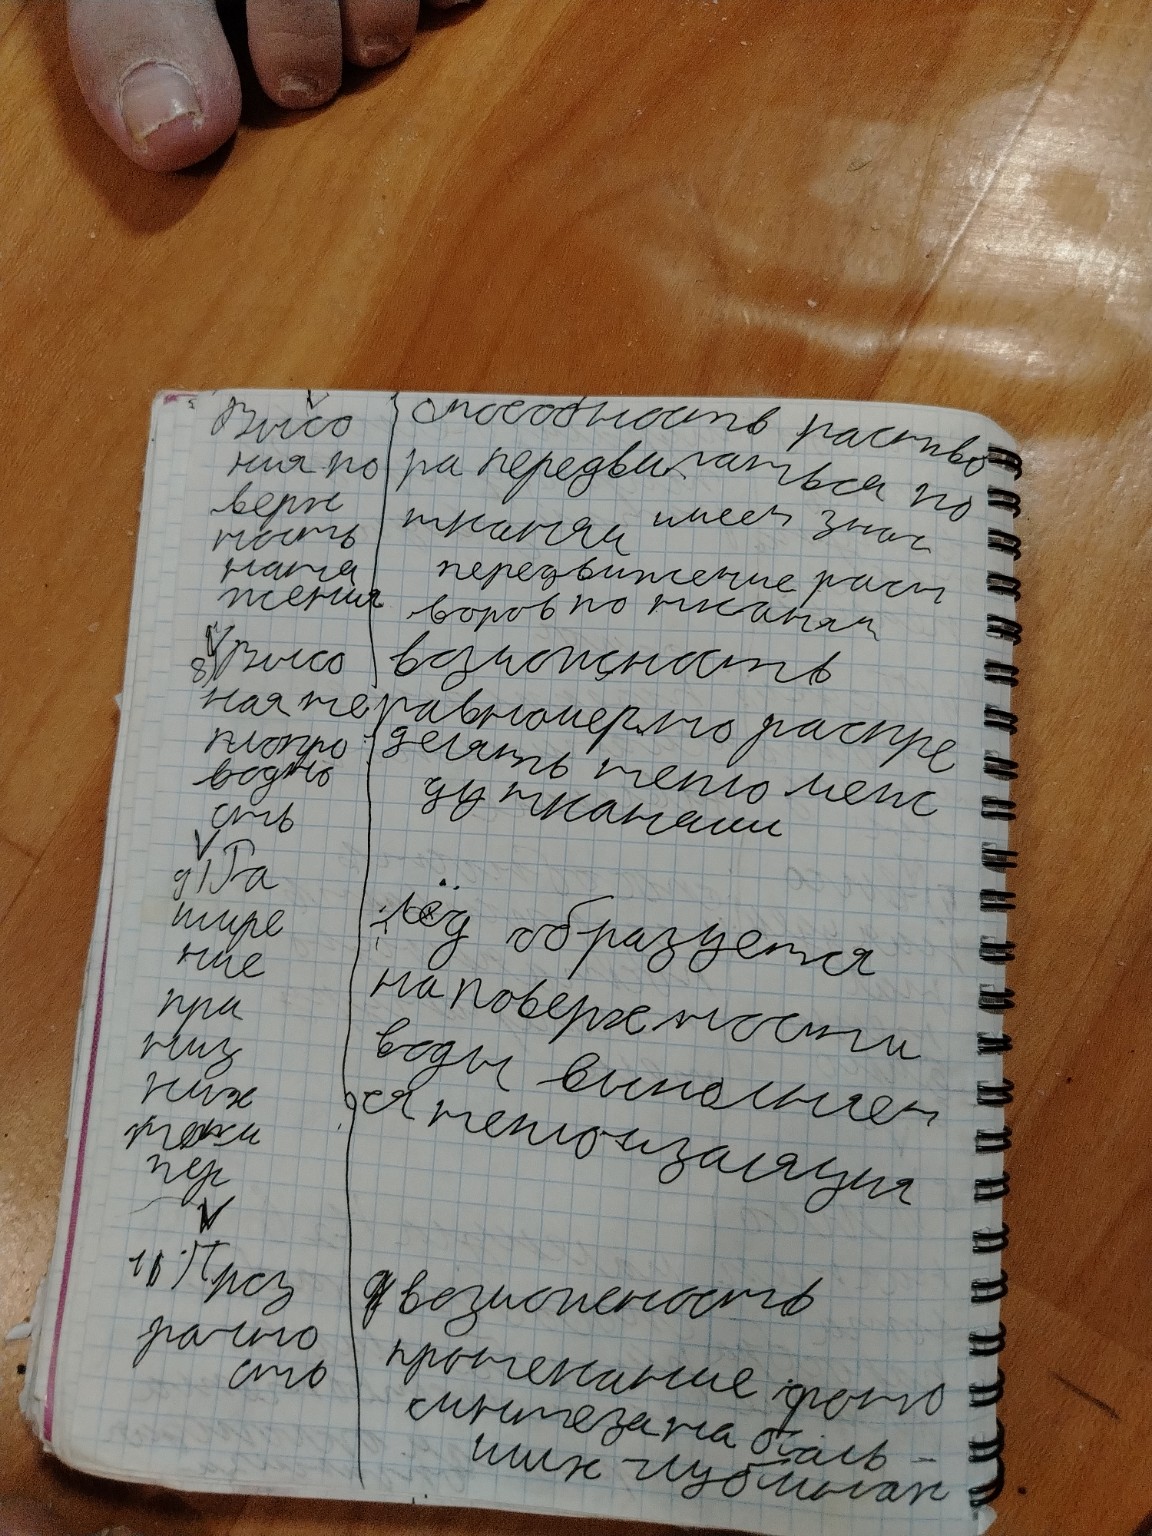 Высо способность раство
ния по ра передвигаться по
верх тканям имеет знач
ность передвижение раст
натя воров по тканям
жения
8) Высо возможность
ная те равномерно распре
плопро делять тепло меж
водно ду тканями
сть
9) Ра
шире лёд образуется
ние на поверхности
пра воды выполняет
низ ся теплоизаляция
ниж
пер
10 Проз возможность
рачно протекание фото
сть синтеза на боль-
ших глубинах